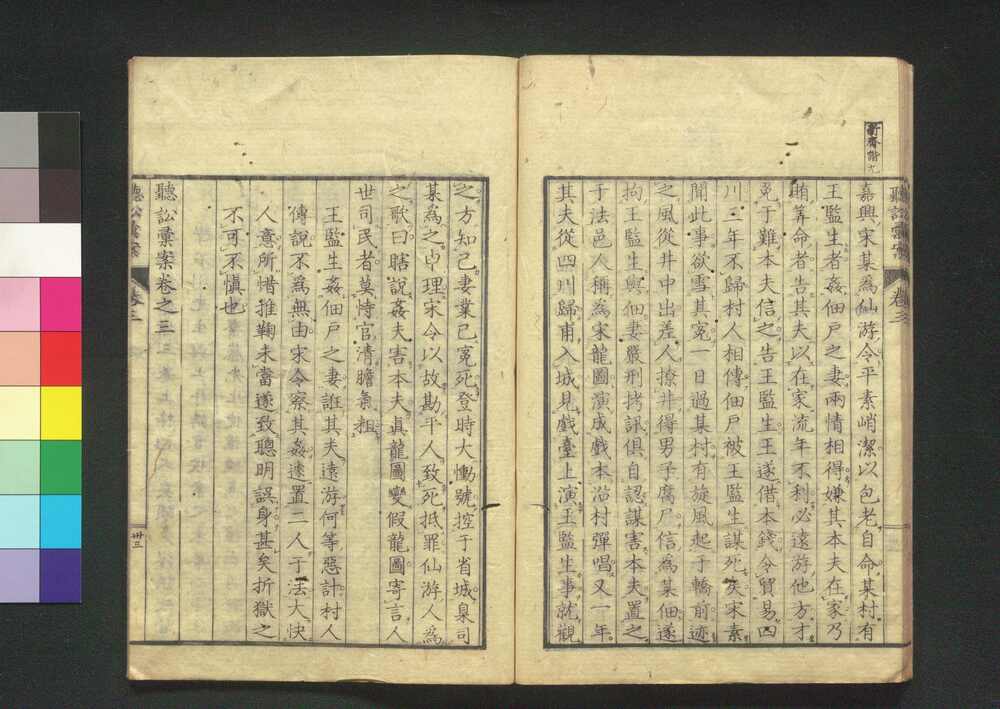 新齊諧九
聽訟彙案 卷三
嘉興宋某為仙游令平素峭潔以包老自命某村有
王監生者姦佃戶之妻兩情相得嫌其本夫在家乃
賄筭命者告其夫以在家流年不利必遠游他方才
免于難本夫信之告王監生王遂借本錢令貿易四
川二年不歸村人相傳佃戶被王監生謀死矣宋素
聞此事欲雪其冤一日過某村有旋風起于轎前迹
之風從井中出差人撩井得男子腐尸信為某佃遂
拘王監生與佃妻嚴刑拷訊俱自認謀害本夫置之
于法邑人稱為宋龍圖演成戲本沿村彈唱又一年
其夫從四川歸甫入城見戲臺上演王監生事就觀
之方知己妻業已冤死登時大慟號控于省城臬司
某為之申理宋令以故勘平人致死抵罪仙游人為
之歌曰瞎說姦夫害本夫真龍圖變假龍圖寄言人
世司民者莫恃官清膽氣粗
王監生姦佃戶之妻誑其夫遠游何等惡計村人
傳說不為無由宋令察其姦遽置二人于法大快
人意所惜推鞠未當遂致聰明誤身甚矣折獄之
不可不慎也
聽訟彙案卷之三
聽訟彙案 卷三
卅三